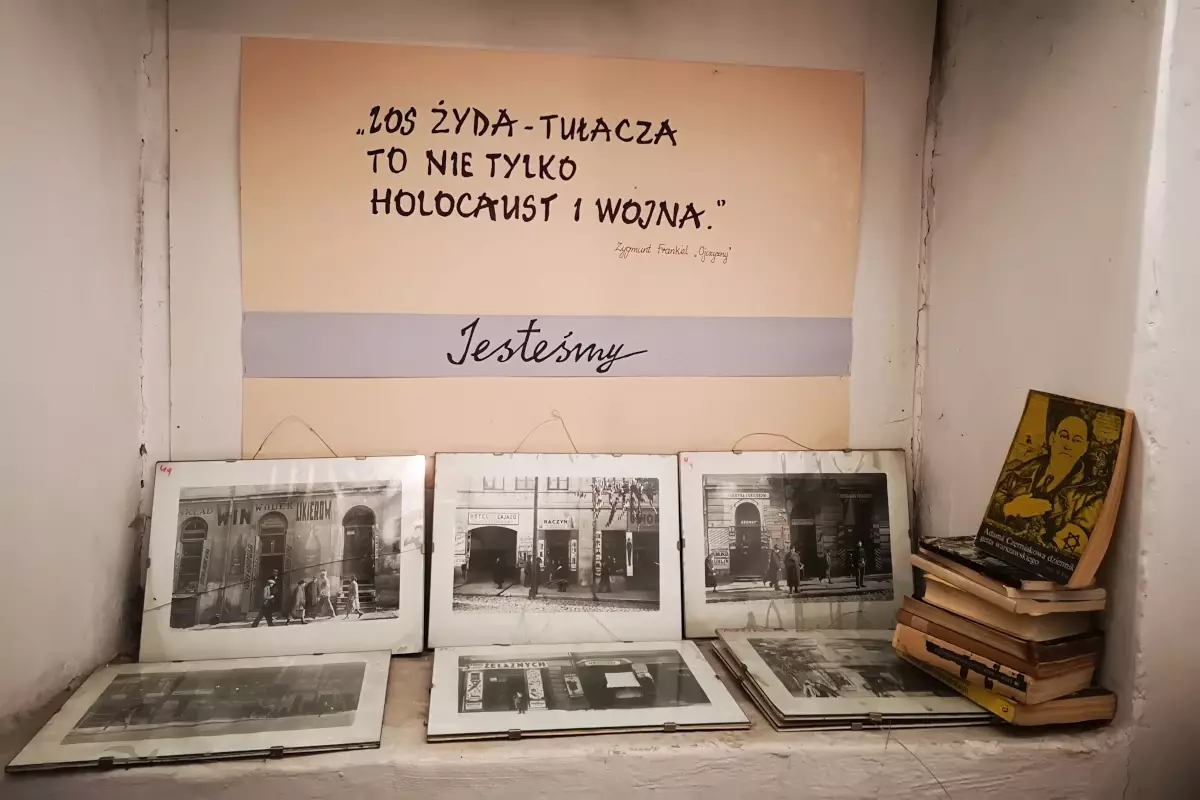 „LOS ŻYDA - TUŁACZA
TO NIE TYLKO
HOLOCAUST I WOJNA."
Zygmunt Frankel „Ojczyzny"
Jesteśmy
SKŁAD WIN WÓDEK LIKIERÓW
HOTEL ZAJAZD
NACZYŃ
ŻELAZNYCH
Adama Czerniakowa dziennik
getta warszawskiego